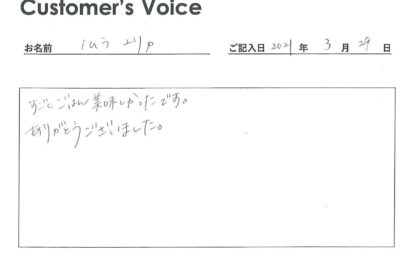 Customer's Voice
お名前 イムラ エリカ ご記入日 2021 年 3 月 29 日
ごはん美味しかったです。
ありがとうございました。